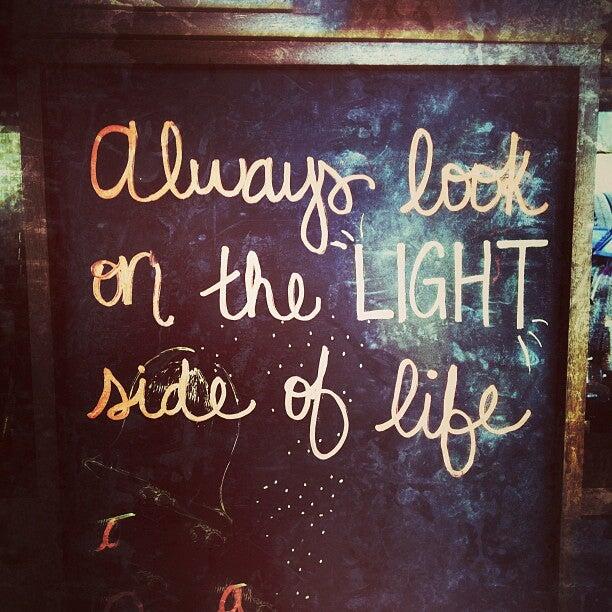 Always look
on the LIGHT
side of life